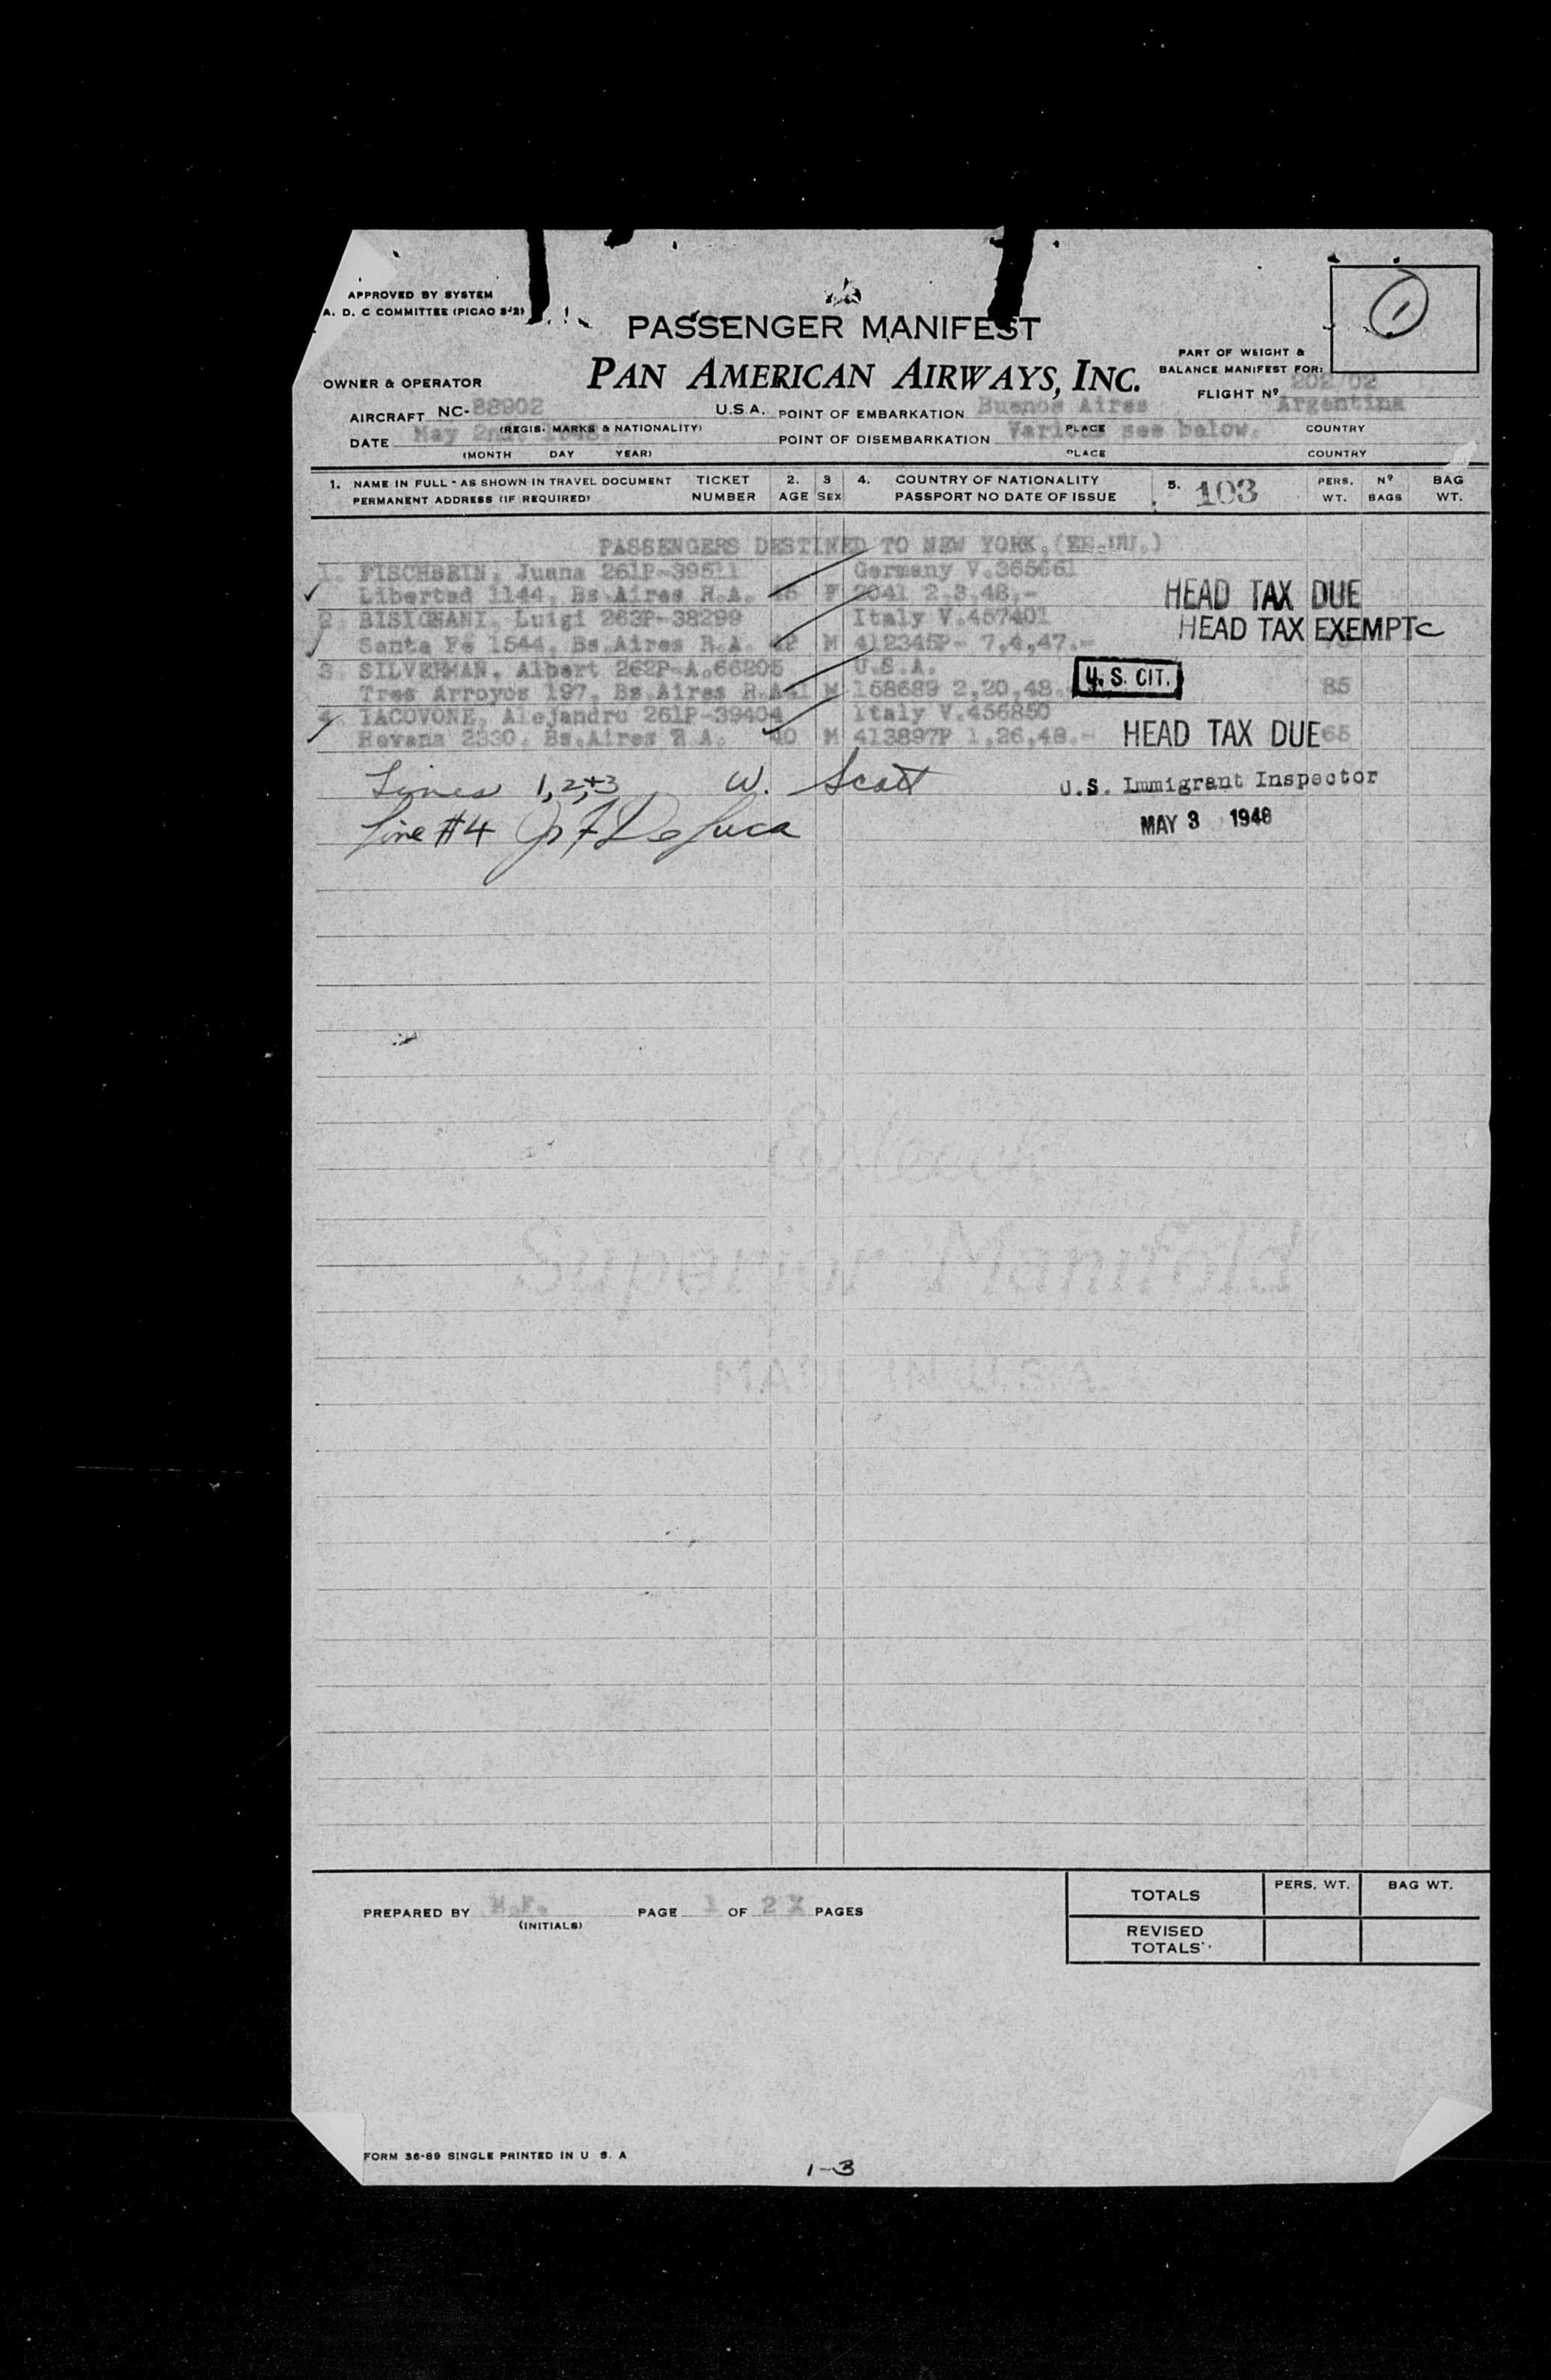 APPROVED BY SYSTEM
A. D. C COMMITTEE (PICAO 2-2)
1
PASSENGER MANIFEST
PAN AMERICAN AIRWAYS, INC.
PART OF WEIGHT &
BALANCE MANIFEST FOR:
OWNER & OPERATOR
FLIGHT Nº 202/02
AIRCRAFT NC-88902 U.S.A. POINT OF EMBARKATION Buenos Aires Argentina
(REGIS. MARKS & NATIONALITY) PLACE COUNTRY
DATE May 2nd. 1948 POINT OF DISEMBARKATION Various see below.
(MONTH DAY YEAR) PLACE COUNTRY
1. NAME IN FULL - AS SHOWN IN TRAVEL DOCUMENT TICKET 2. 3 4. COUNTRY OF NATIONALITY 5. 103 PERS. Nº BAG
PERMANENT ADDRESS (IF REQUIRED) NUMBER AGE SEX PASSPORT NO DATE OF ISSUE WT. BAGS WT.
PASSENGERS DESTINED TO NEW YORK.(EE.UU.)
1. FISCHBEIN, Juana 261P-39511 Germany V.365661
Libertad 1144, Bs.Aires R.A. F 2041 2.3,48,- HEAD TAX DUE
2. BISIGNANI, Luigi 263P-38299 Italy V.457401 HEAD TAX EXEMPT C
Santa Fé 1544, Bs.Aires R.A. 42 M 412345P- 7,4,47.-
3. SILVERMAN, Albert 262P-A.66205 U.S.A.
Tres Arroyos 197, Bs.Aires R.A. 41 M 158689 2,20,48. U. S. CIT. 85
4. IACOVONE, Alejandro 261P-39404 Italy V.456850
Havana 2330, Bs.Aires R.A. 40 M 413897P 1,26,48.- HEAD TAX DUE 65
Lines 1,2,+3 W. Scott U.S. Immigrant Inspector
Line #4 DeLuca MAY 3 1948
Superior Manifold
MADE IN U.S.A.
PREPARED BY (INITIALS) PAGE 1 OF 2 PAGES
TOTALS PERS. WT. BAG WT.
REVISED
TOTALS
FORM 36-89 SINGLE PRINTED IN U S. A
1-3